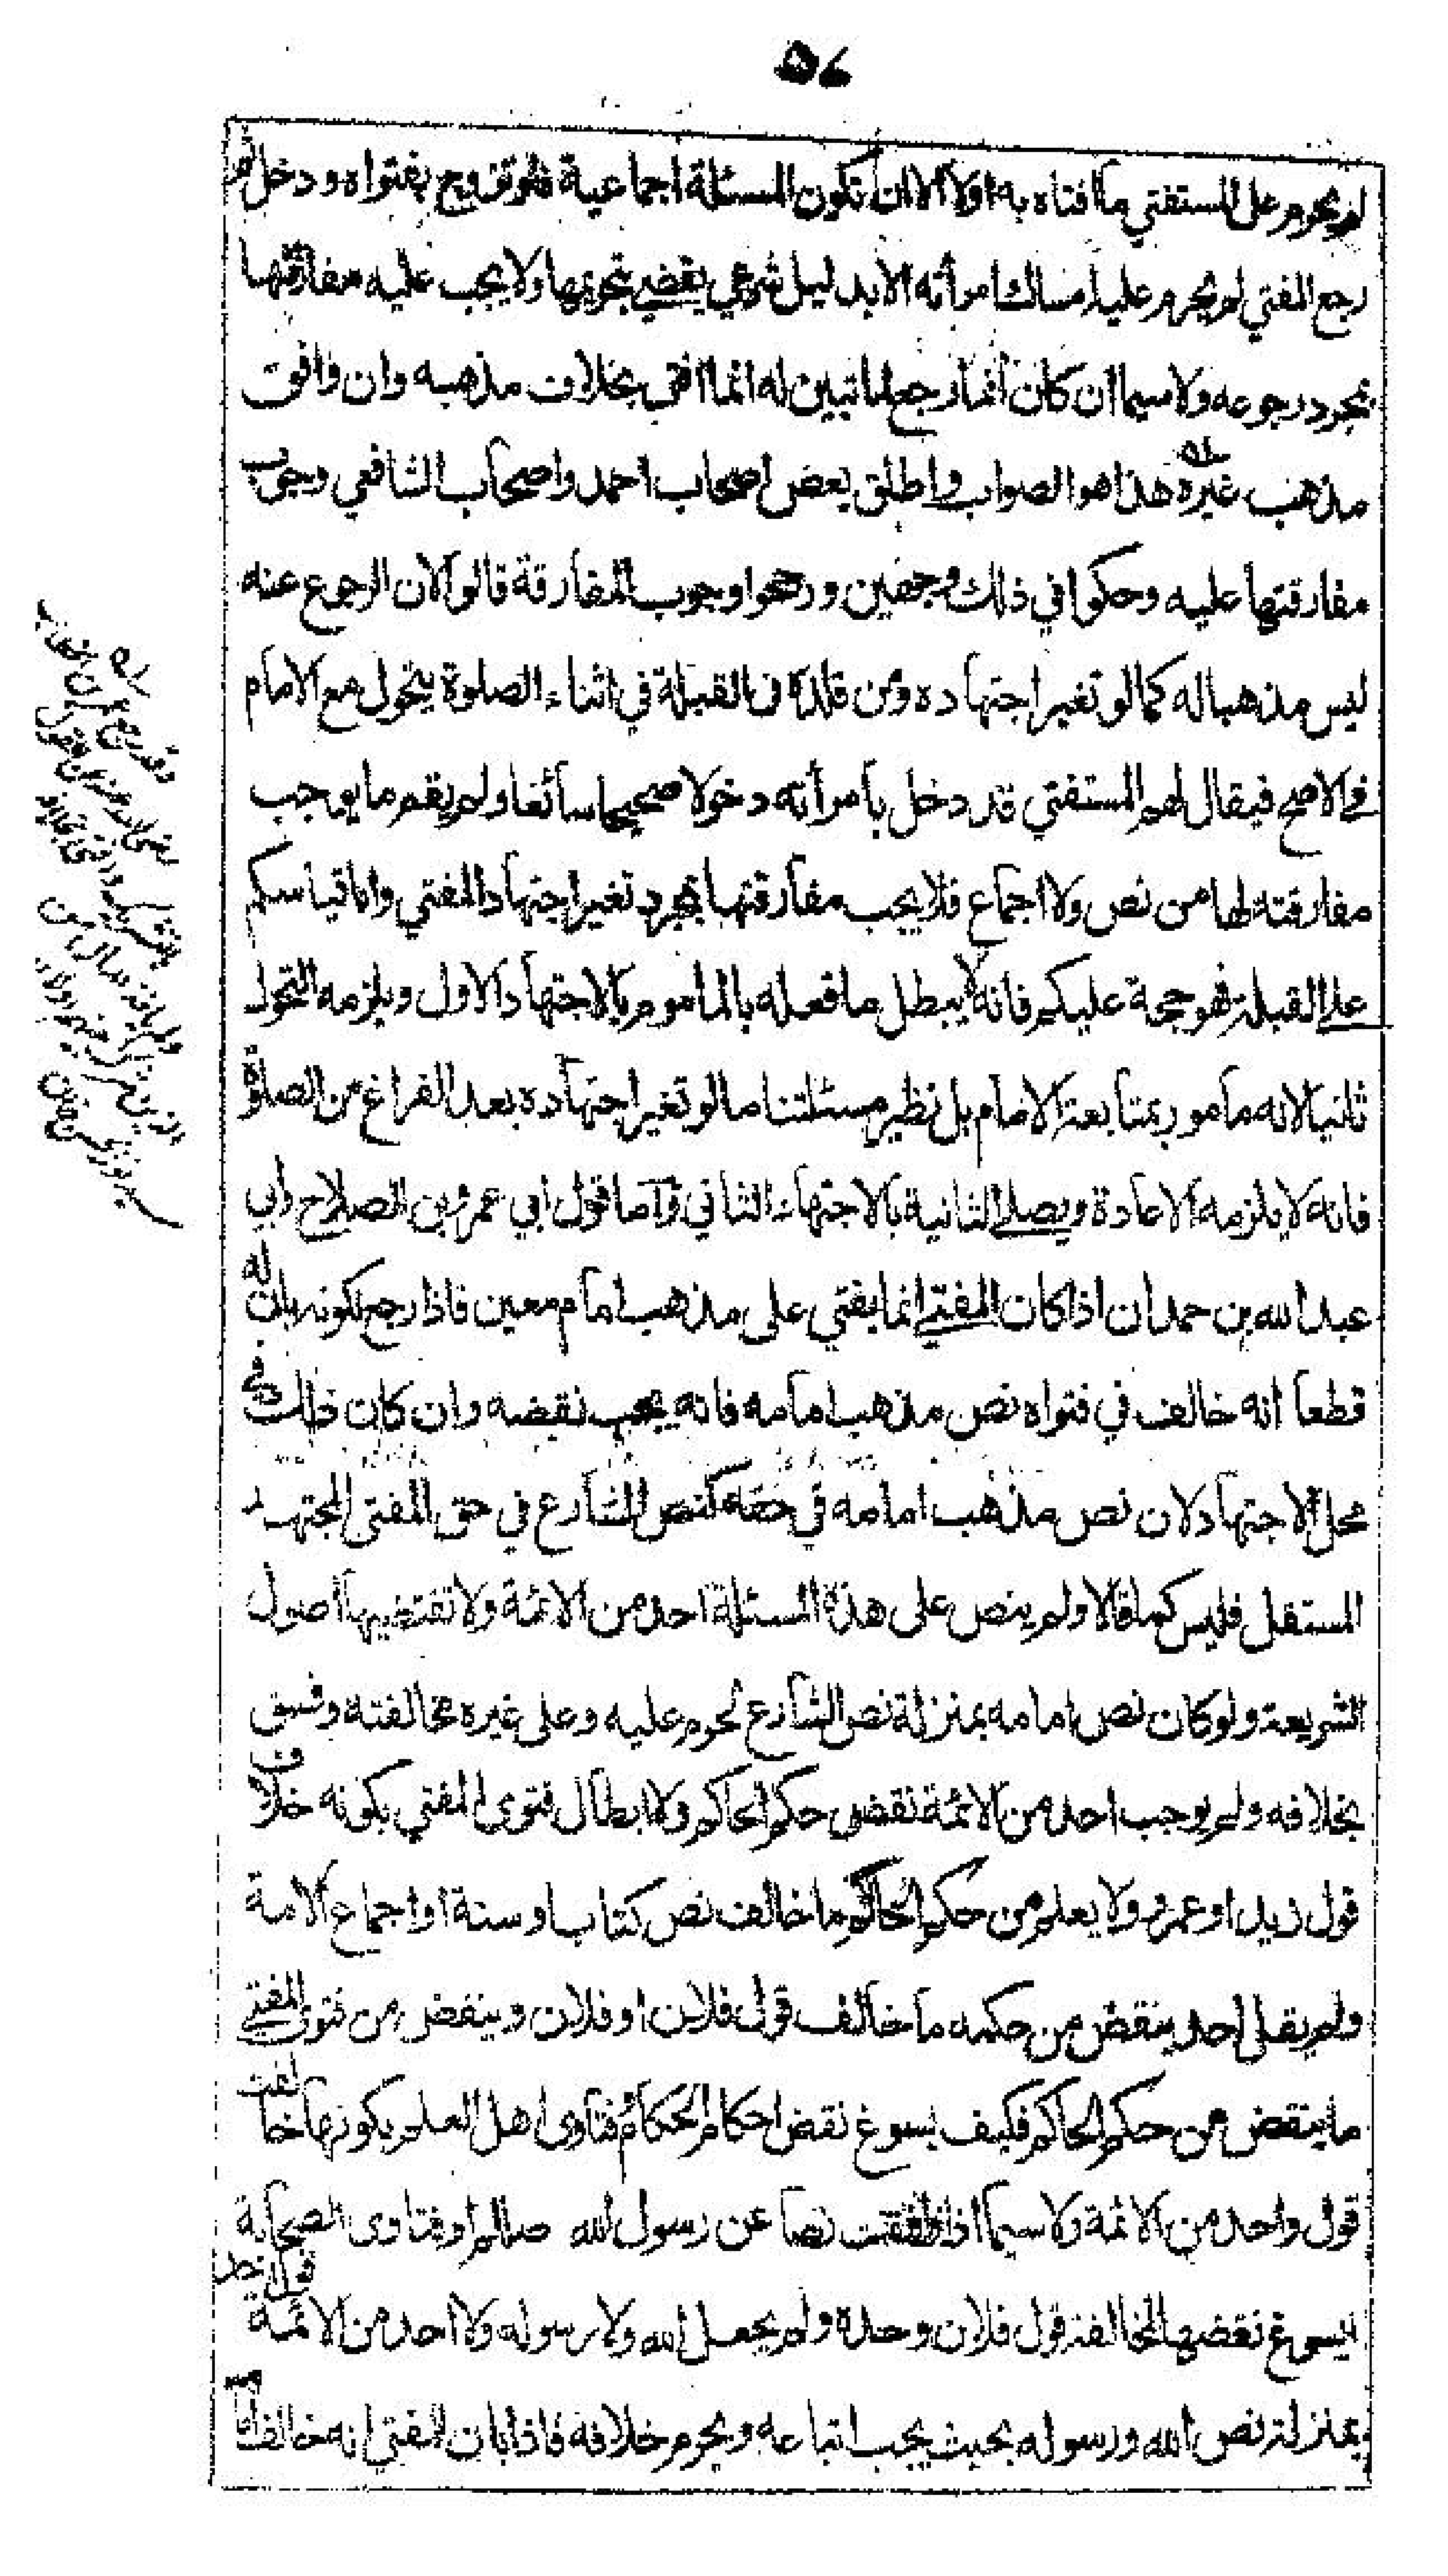 ٥٧
لم يحرم على المستفتي ما افتاه به اولا الا ان تكون المسئلة اجماعية فلو تزوج بفتواه ودخل ثم
رجع المفتي لم يحرم عليه امساك امرأته الا بدليل شرعي يقضي بتحريمها ولا يجب عليه مفارقتها
بمجرد رجوعه ولا سيما ان كان انما رجع لما تبين له انما افتى بخلاف مذهبه وان وافق
مذهب غيره هذا هو الصواب واطلق بعض اصحاب احمد واصحاب الشافعي وجوب
مفارقتها عليه وحكوا في ذلك وجهين ورجحوا وجوب المفارقة قالوا لان الرجوع عنه
ليس مذهبا له كما لو تغير اجتهاده ومن قلده في القبلة في اثناء الصلوة يتحول مع الامام
في الاصح فيقال لهم المستفتي قد دخل بأمرأته دخولا صحيحا سائغا ولم يقم ما يوجب
مفارقته لها من نص ولا اجماع فلا يجب مفارقتها بمجرد تغير اجتهاد المفتي واما قياسكم
على القبلة فهو حجة عليكم فانه لا يبطل ما فعله بالمأموم بالاجتهاد الاول ويلزمه التحول
ثانيا لانه مأمور بمتابعة الامام بل نظير مسئلتنا ما لو تغير اجتهاده بعد الفراغ من الصلوة
فانه لا يلزمه الاعادة ويصلي الثانية بالاجتهاد الثاني وأما قول ابي عمرو بن الصلاح وابي
عبد الله بن حمدان اذا كان المفتي انما يفتي على مذهب امام معين فاذا رجع لكونه بان له
قطعا انه خالف في فتواه نص مذهب امامه فانه يجب نقضه وان كان ذلك في
محل الاجتهاد لان نص مذهب امامه في حقه كنص الشارع في حق المفتي المجتهد
المستقل فليس كما قالا ولم ينص على هذه المسئلة احد من الائمة ولا تقتضيها اصول
الشريعة ولو كان نص امامه بمنزلة نص الشارع لحرم عليه وعلى غيره مخالفته وفسق
بخلافه ولم يوجب احد من الائمة نقض حكم الحاكم ولا ابطال فتوى المفتي بكونه خلاف
قول زيد او عمرو ولا يعلم من حكم الحاكم ما خالف نص كتاب او سنة او اجماع الامة
ولم يقل احد ينقض من حكمه ما خالف قول فلان او فلان وينقض من فتوى المفتي
ما ينقض من حكم الحاكم فكيف يسوغ نقض احكام الحكام وفتاوى اهل العلم بكونها خالفت
قول واحد من الائمة ولا سيما اذا وافقت نصا عن رسول الله صللم او فتاوى الصحابة
ايسوغ نقضها لمخالفة قول فلان وحده ولم يجعل الله ولا رسوله ولا احد من الائمة قول
بمنزلة نص الله ورسوله بحيث يجب اتباعه ويحرم خلافه فاذا بان للمفتي انه خالف